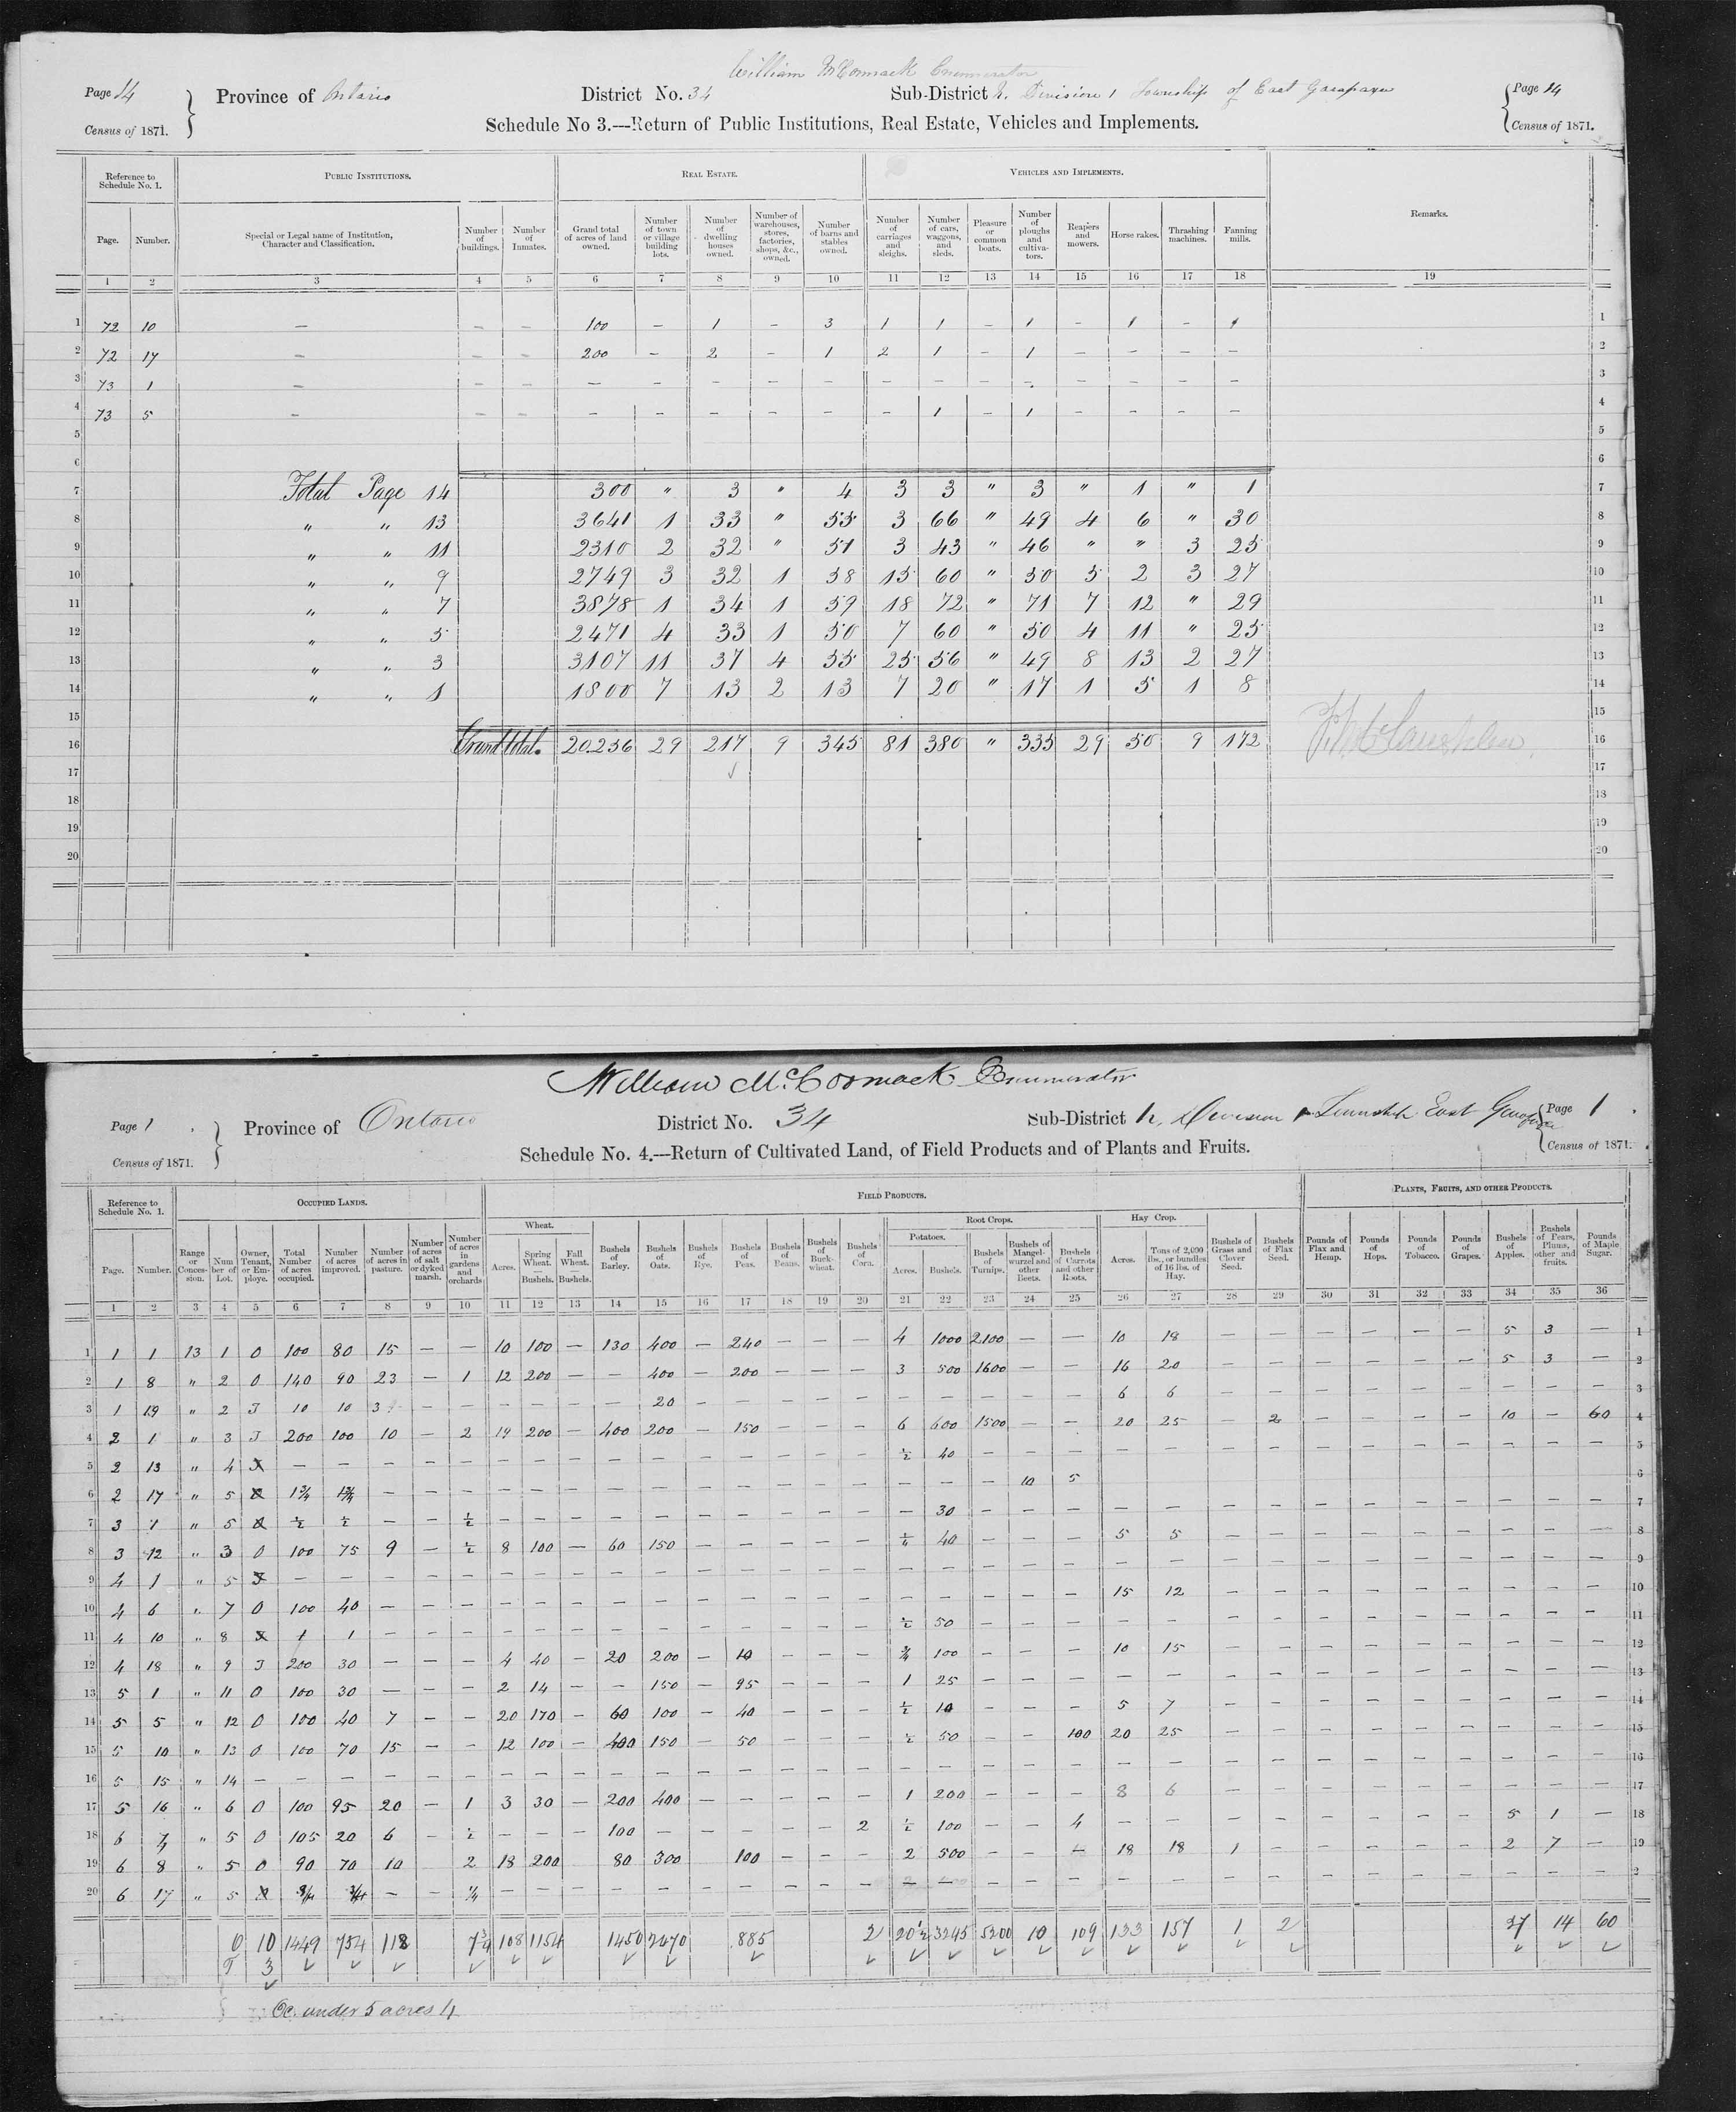 William McCormack Enumerator
Page 14 Province of Ontario District No. 34 Sub-District h. Division 1 Township of East Garafraxa Page 14
Census of 1871. Census of 1871.
Schedule No 3.—Return of Public Institutions, Real Estate, Vehicles and Implements.
Reference to Schedule No. 1. PUBLIC INSTITUTIONS. REAL ESTATE. VEHICLES AND IMPLEMENTS. Remarks.
Page. Number. Special or Legal name of Institution, Character and Classification. Number of buildings. Number of Inmates. Grand total of acres of land owned. Number of town or village building lots. Number of dwelling houses owned. Number of warehouses, stores, factories, shops, &c., owned. Number of barns and stables owned. Number of carriages and sleighs. Number of cars, waggons, and sleds. Pleasure or common boats. Number of ploughs and cultivators. Reapers and mowers. Horse rakes. Thrashing machines. Fanning mills.
1 2 3 4 5 6 7 8 9 10 11 12 13 14 15 16 17 18 19
1 72 10 — — — 100 — 1 — 3 1 1 — 1 — 1 — 1 1
2 72 17 — — — 200 — 2 — 1 2 1 — 1 — — — — 2
3 73 1 — — — — — — — — — — — — — — — — 3
4 73 5 — — — — — — — — — 1 — 1 — — — — 4
5 5
6 6
7 Total Page 14 300 " 3 " 4 3 3 " 3 " 1 " 1 7
8 " " 13 3641 1 33 " 55 3 66 " 49 4 6 " 30 8
9 " " 11 2310 2 32 " 51 3 43 " 46 " " 3 25 9
10 " " 9 2749 3 32 1 58 15 60 " 50 5 2 3 27 10
11 " " 7 3878 1 34 1 59 18 72 " 71 7 12 " 29 11
12 " " 5 2471 4 33 1 50 7 60 " 50 4 11 " 25 12
13 " " 3 3107 11 37 4 55 25 56 " 49 8 13 2 27 13
14 " " 1 1800 7 13 2 13 7 20 " 17 1 5 1 8 14
15 15
16 Grand total. 20.256 29 217 9 345 81 380 " 335 29 50 9 172 16
17 17
18 18
19 19
20 20
William McCormack Enumerator
Page 1 Province of Ontario District No. 34 Sub-District h, Division 1 Township East Garafraxa Page 1
Census of 1871. Census of 1871.
Schedule No. 4.—Return of Cultivated Land, of Field Products and of Plants and Fruits.
Reference to Schedule No. 1. OCCUPIED LANDS. FIELD PRODUCTS. PLANTS, FRUITS, AND OTHER PRODUCTS.
Wheat. Root Crops. Hay Crop.
Potatoes.
Page. Number. Range or Concession. Number of Lot. Owner, Tenant, or Employe. Total Number of acres occupied. Number of acres improved. Number of acres in pasture. Number of acres of salt or dyked marsh. Number of acres in gardens and orchards Acres. Spring Wheat.—Bushels. Fall Wheat.—Bushels. Bushels of Barley. Bushels of Oats. Bushels of Rye. Bushels of Peas. Bushels of Beans. Bushels of Buckwheat. Bushels of Corn. Acres. Bushels. Bushels of Turnips. Bushels of Mangelwurzel and other Beets. Bushels of Carrots and other Roots. Acres. Tons of 2,000 lbs., or bundles of 16 lbs. of Hay. Bushels of Grass and Clover Seed. Bushels of Flax Seed. Pounds of Flax and Hemp. Pounds of Hops. Pounds of Tobacco. Pounds of Grapes. Bushels of Apples. Bushels of Pears, Plums, other and fruits. Pounds of Maple Sugar.
1 2 3 4 5 6 7 8 9 10 11 12 13 14 15 16 17 18 19 20 21 22 23 24 25 26 27 28 29 30 31 32 33 34 35 36
1 1 1 13 1 O 100 80 15 — — 10 100 — 130 400 — 240 — — — 4 1000 2100 — — 10 18 — — — — — — 5 3 — 1
2 1 8 " 2 O 140 90 23 — 1 12 200 — — 400 — 200 — — — 3 500 1600 — — 16 20 — — — — — — 5 3 — 2
3 1 19 " 2 T 10 10 3 — — — — — — 20 — — — — — — — — — — 6 6 — — — — — — — — — 3
4 2 1 " 3 T 200 100 10 — 2 19 200 — 400 200 — 150 — — — 6 600 1500 — — 20 25 — 2 — — — — 10 — 60 4
5 2 13 " 4 — — — — — — — — — — — — — — — ½ 40 — — — — — — — — — — — — — — 5
6 2 17 " 5 1¾ 1¾ — — — — — — — — — — — — — — — — 10 5 6
7 3 1 " 5 ½ ½ — — ½ — — — — — — — — — — — 30 — — — — — — — — — — — — — — 7
8 3 12 " 3 O 100 75 9 — ½ 8 100 — 60 150 — — — — — ¼ 40 — — — 5 5 — — — — — — — — — 8
9 4 1 " 5 — — — — — — — — — — — — — — — — — — — — — — — — — — — — — — — 9
10 4 6 " 7 O 100 40 — — — — — — — — — — — — — — — — — — 15 12 — — — — — — — — — 10
11 4 10 " 8 1 1 — — — — — — — — — — — — — ½ 50 — — — — — — — — — — — — — — 11
12 4 18 " 9 T 200 30 — — — 4 40 — 20 200 — 10 — — — ¾ 100 — — — 10 15 — — — — — — — — — 12
13 5 1 " 11 O 100 30 — — — 2 14 — — 150 — 95 — — — 1 25 — — — — — — — — — — — — — — 13
14 5 5 " 12 O 100 40 7 — — 20 170 — 60 100 — 40 — — — ½ 10 — — — 5 7 — — — — — — — — — 14
15 5 10 " 13 O 100 70 15 — — 12 100 — 400 150 — 50 — — — ½ 50 — — 100 20 25 — — — — — — — — — 15
16 5 15 " 14 — — — — — — — — — — — — — — — — — — — — — — — — — — — — — — — — 16
17 5 16 " 6 O 100 95 20 — 1 3 30 — 200 400 — — — — — 1 200 — — — 8 6 — — — — — — — — — 17
18 6 4 " 5 O 105 20 6 — ½ — — — 100 — — — — — 2 ½ 100 — — 4 — — — — — — — — 5 1 — 18
19 6 8 " 5 O 90 70 10 2 18 200 80 300 100 — — — 2 500 — — — 18 18 1 — — — — — 2 7 — 19
20 6 17 " 5 ¾ ¾ — — ¼ — — — — — — — — — — — — — — — — — — — — — — — — — — 2
O 10 1449 754 118 7¾ 108 1154 1450 2470 885 2 20½ 3245 5200 10 109 133 157 1 2 27 14 60
T 3
Oc. under 5 acres 4